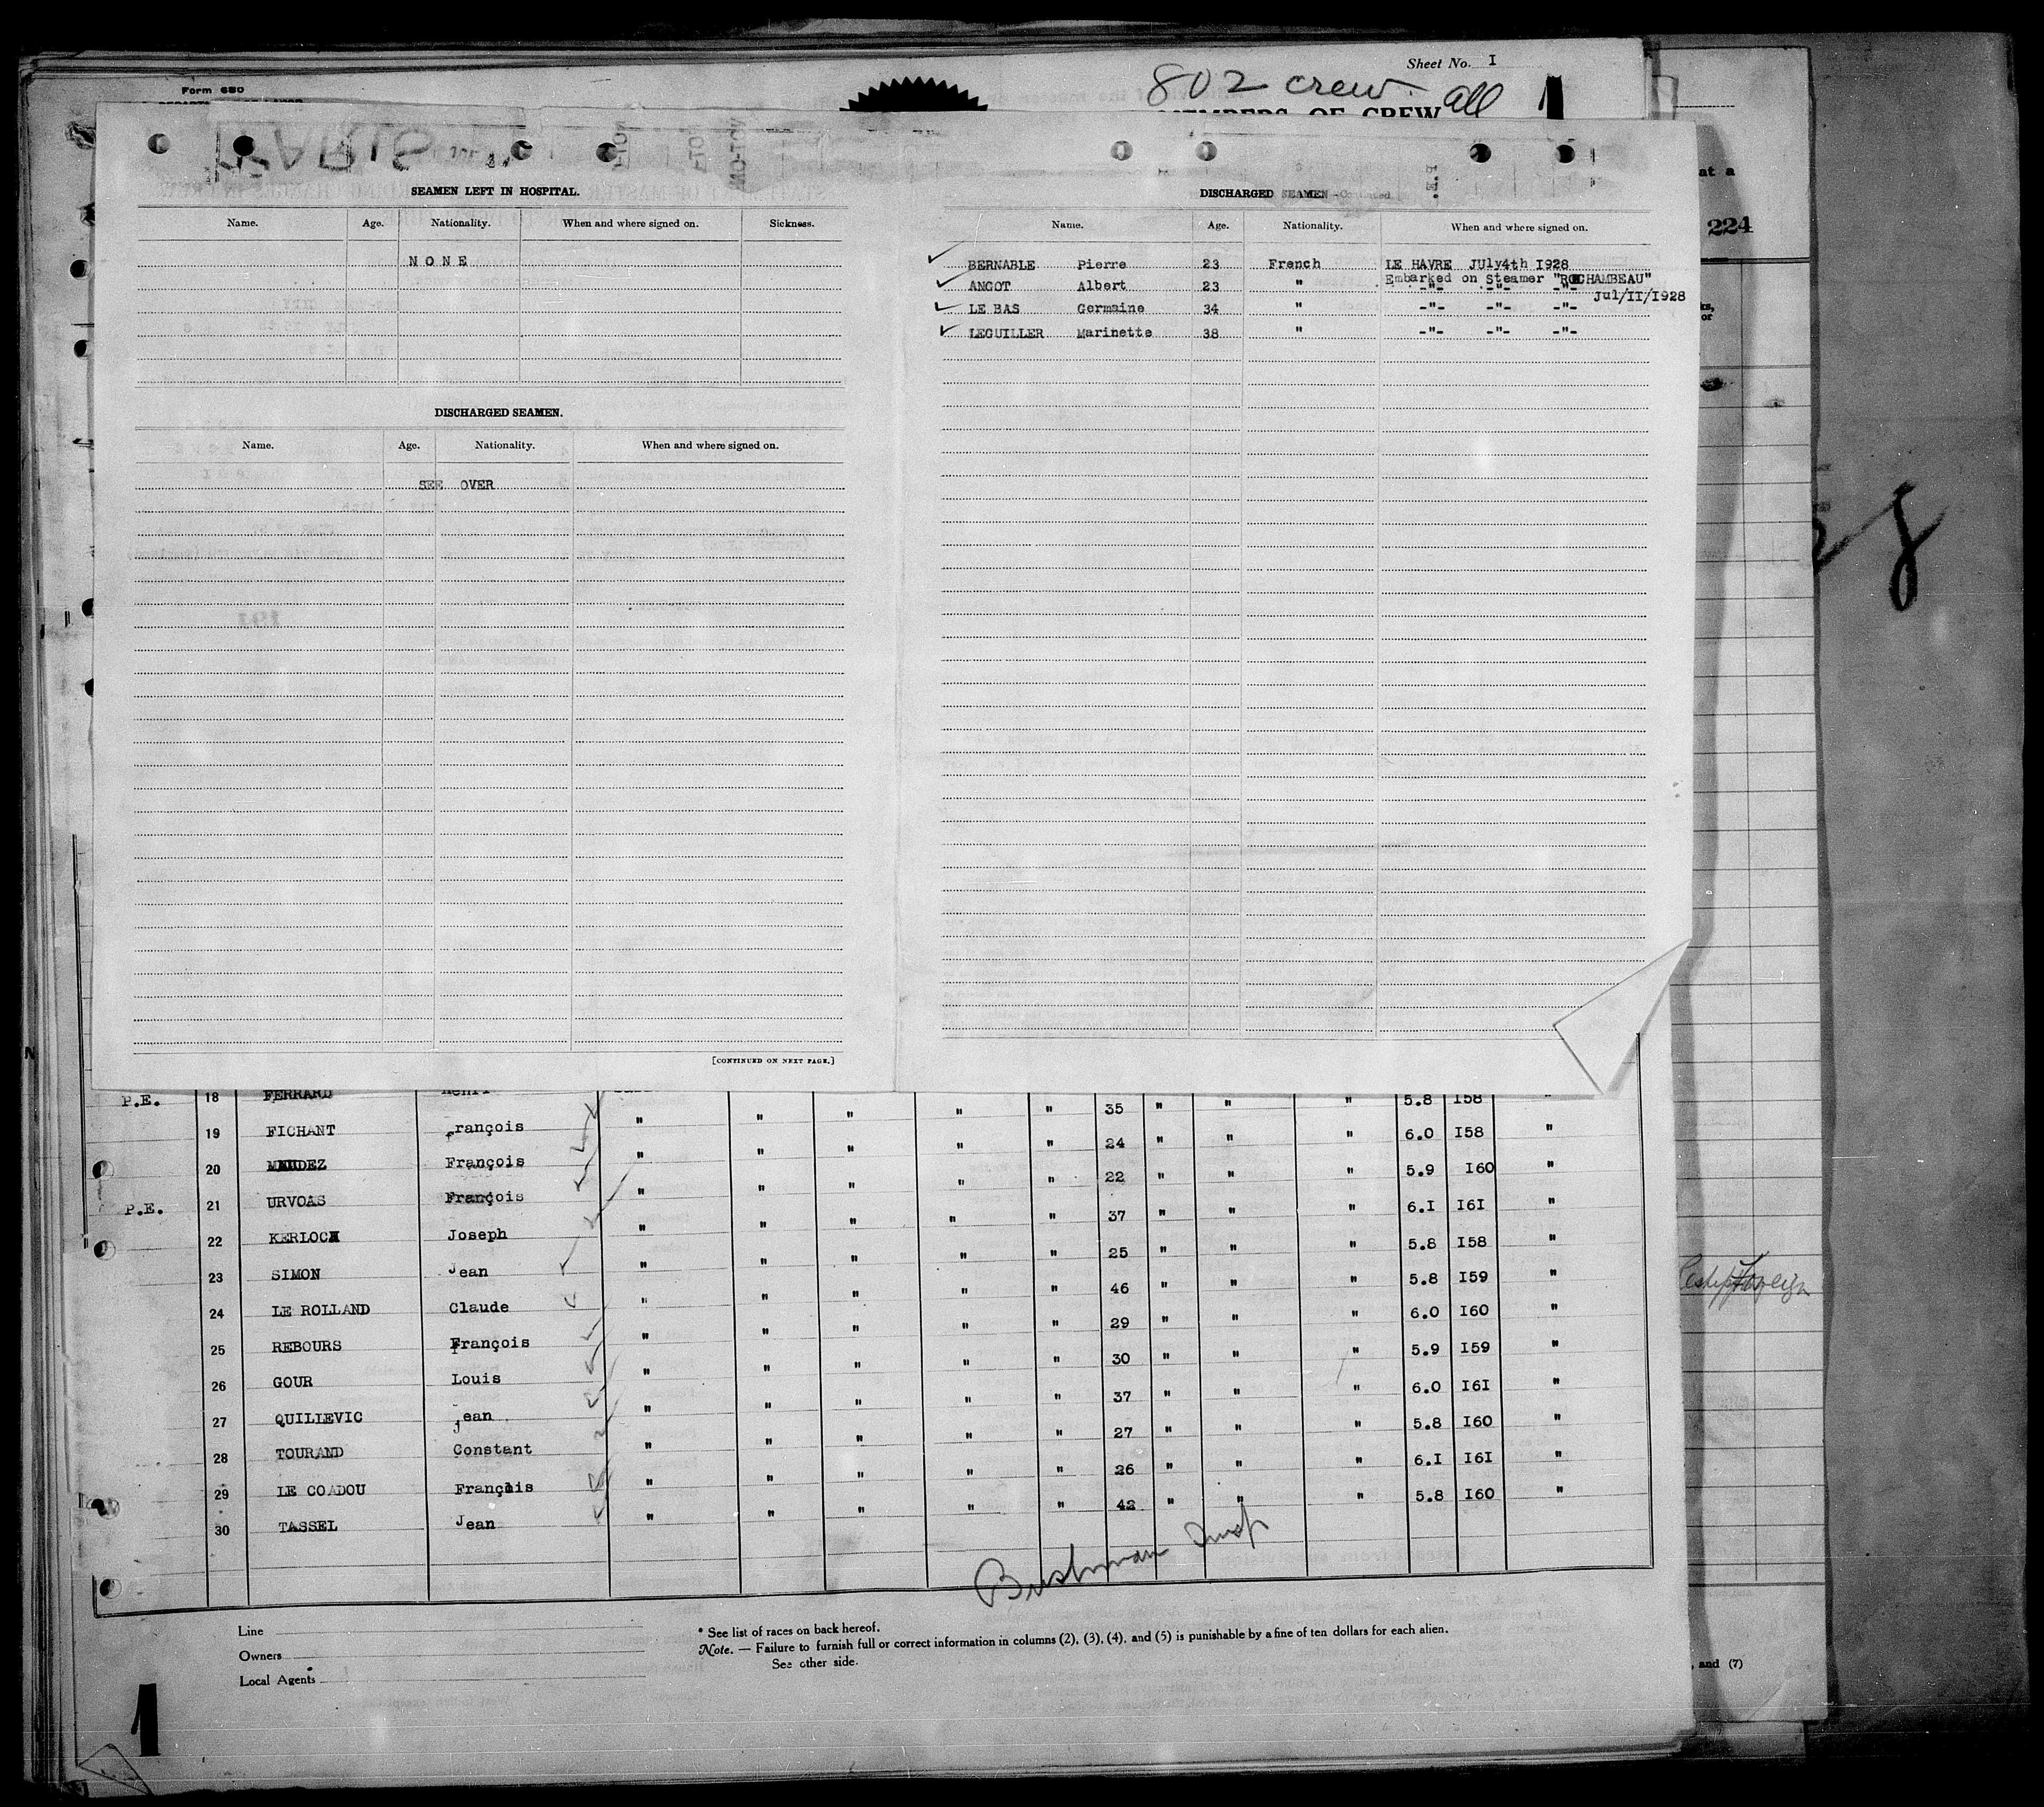 Sheet No. I
Form 680
802 crew all
MEMBERS OF CREW
SEAMEN LEFT IN HOSPITAL.
Name. Age. Nationality. When and where signed on. Sickness.
NONE
DISCHARGED SEAMEN.
Name. Age. Nationality. When and where signed on.
SEE OVER
[CONTINUED ON NEXT PAGE.]
DISCHARGED SEAMEN-Continued
Name. Age. Nationality. When and where signed on.
BERNABLE Pierre 23 French LE HAVRE JUly4th I928
Embarked on Steamer "ROCHAMBEAU"
ANGOT Albert 23 " -"- -"- -"-
Jul/II/I928
LE BAS Germaine 34 " -"- -"- -"-
LEGUILLER Marinette 38 " -"- -"- -"-
at a
224
or
P.E. 18 FERRARD Henri 35 " " " 5.8 I58 "
19 FICHANT François " " " " " 24 " " " 6.0 I58 "
20 MAUDEZ François " " " " " 22 " " " 5.9 I60 "
P.E. 21 URVOAS François " " " " " 37 " " " 6.I I6I "
22 KERLOCH Joseph " " " " " 25 " " " 5.8 I58 "
23 SIMON Jean " " " " " 46 " " " 5.8 I59 "
24 LE ROLLAND Claude " " " " " 29 " " " 6.0 I60 "
25 REBOURS François " " " " " 30 " " " 5.9 I59 "
26 GOUR Louis " " " " " 37 " " " 6.0 I6I "
27 QUILLEVIC jean " " " " " 27 " " " 5.8 I60 "
28 TOURAND Constant " " " " " 26 " " " 6.I I6I "
29 LE COADOU François " " " " " 42 " " " 5.8 I60 "
30 TASSEL Jean " "
Bushman Insp
Line
Owners
Local Agents
* See list of races on back hereof.
Note. — Failure to furnish full or correct information in columns (2), (3), (4), and (5) is punishable by a fine of ten dollars for each alien.
See other side.
, and (7)
1